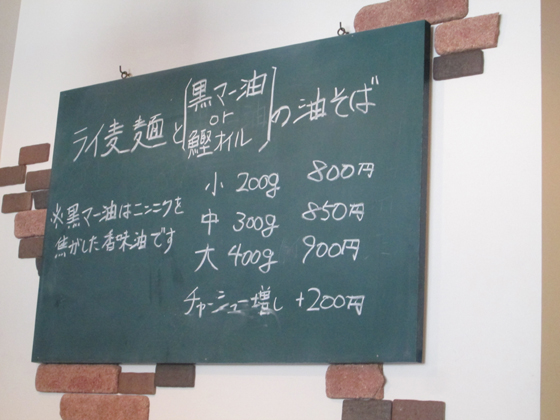 ライ麦麺と[黒マー油or鰹オイル]の油そば
小 200g 800円
中 300g 850円
大 400g 900円
チャーシュー増し +200円
※黒マー油はニンニクを
焦がした香味油です